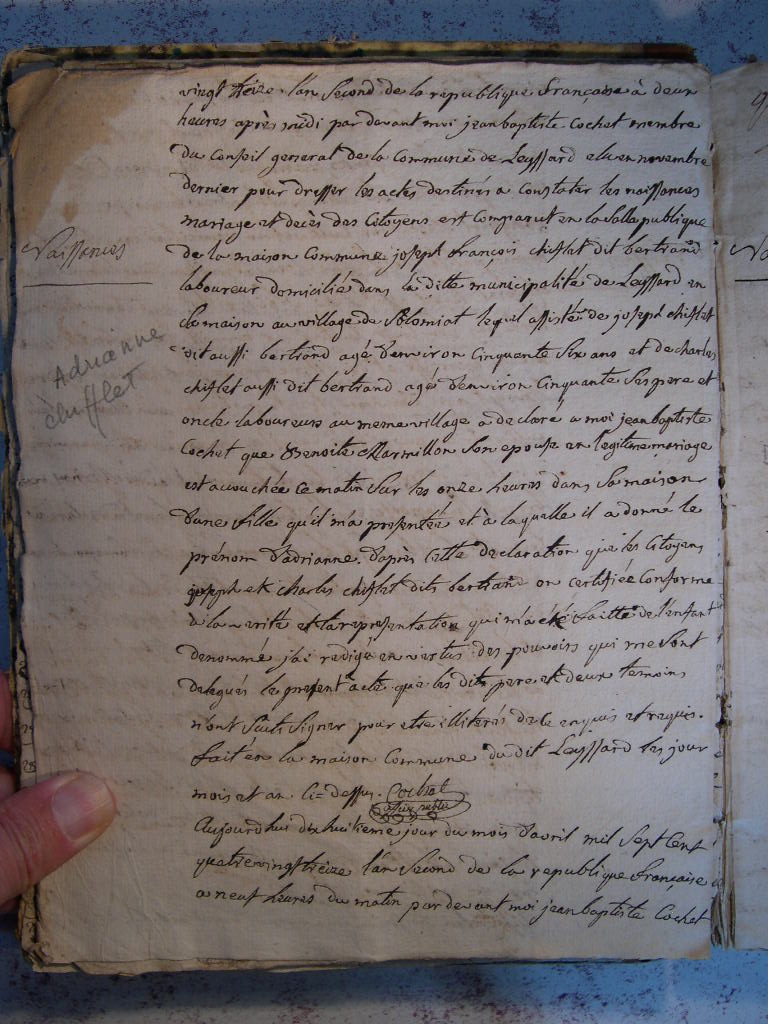 vingt treize l'an second de la republique française à deux
heures après midi par davant moi jean baptiste Cochet membre
du Conseil general de la Commune de Leyssard elu en novembre
dernier pour dresser les actes destinés a Constater les naissances
mariage et decès des Citoyens est Comparut en la Salle publique
Naissances
de la maison Commune joseph françois chiflet dit bertrand
laboureur domicilié dans la ditte municipalité de Leyssard en
Sa maison au village de Solomiat lequel assisté de joseph chiflet
Adrianne
chifflet
dit aussi bertrand agé d'environ Cinquante Six ans et de charles
chiflet aussi dit bertrand agé d'environ Cinquante Ses pere et
oncle laboureurs au meme village a declaré a moi jean baptiste
Cochet que Benoite Marmillon Son epouse en legitime mariage
est accouchée ce matin Sur les onze heures dans Sa maison
d'une fille qu'il m'a presentée et à laquelle il a donné le
prénom d'adrianne. d'après Cette declaration que les Citoyens
joseph et charles chiflet dits bertrand on certifiée Conforme
à la verité et la representation qui m'a été faitte de l'enfant
denommé j'ai redigé en vertus des pouvoirs qui me Sont
delegués le present acte que les dits pere et deux temoins
n'ont Scut Signer pour etre illiterés de ce enquis et requis.
fait en la maison Commune du dit Leyssard les jour
mois et an Ci=dessus. Cochet
officier public
Aujourd'hui dix huitieme jour du mois d'avril mil Sept Cent
quatrevingt treize l'an Second de la republique française
a neuf heures du matin par devant moi jean baptiste Cochet